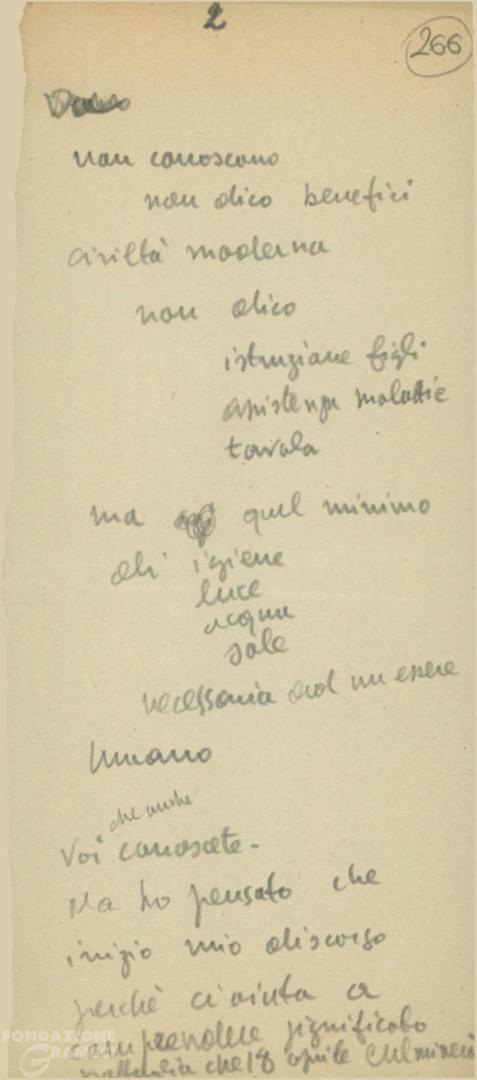 2
266
non conoscono
non dico benefici
civiltà moderna
non dico
istruzione figli
assistenza malattie
tavola
ma quel minimo
di igiene
luce
acqua
sole
necessaria ad un essere
umano
che anche
Voi conoscete -
Ma ho pensato che
inizio mio discorso
perchè ci aiuta a
comprendere significato
battaglia che 18 aprile culminerà
FONDAZIONE
GRAMSCI